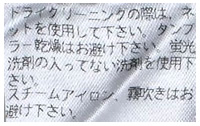 ドライクリーニングの際は、ネ
ットを使用して下さい。タンブ
ラー乾燥はお避け下さい。蛍光
洗剤の入ってない洗剤を使用下
さい。
スチームアイロン、霧吹きはお
避け下さい。